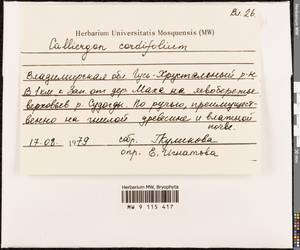 Вл. 26.
Herbarium Universitatis Mosquensis (MW)
Calliergon cordifolium
Владимирская обл. Гусь-Хрустальный р-н
В 1 км к Зап. от дер. на левобережье
верховьев р. Судогды. По ручью, преимущест-
венно на гнилой древесине и влажной
почве.
17.08. 1979 собр. Куликова
опр. Е. Игнатова
Herbarium MW, Bryophyta
MW 9 115 417